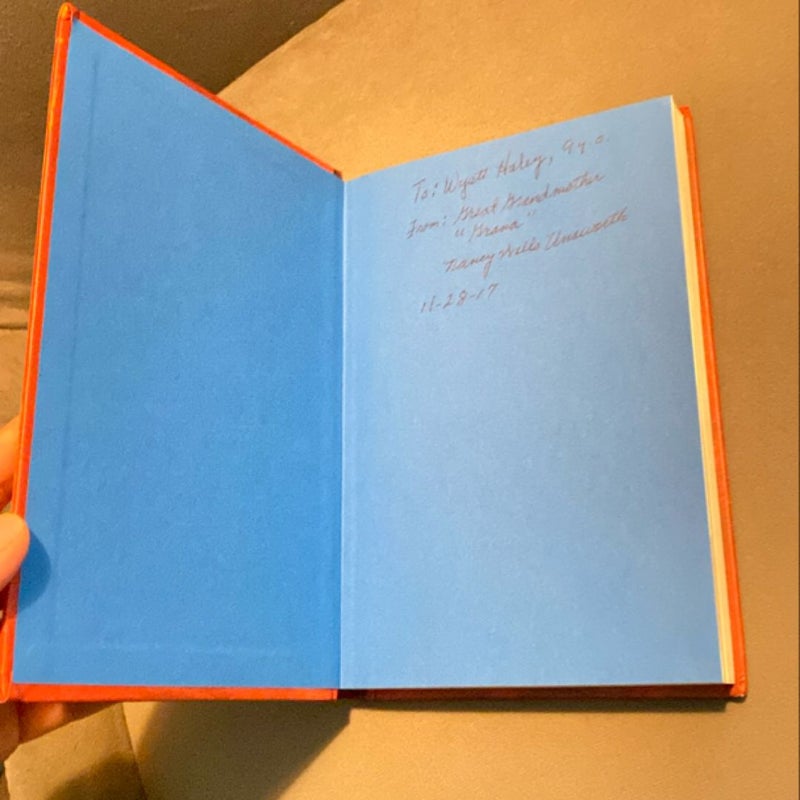 To: Wyatt Haley, 9 y.o.
From: Great Grandmother
"Grama"
Nancy Wills Unsworth
11-28-17